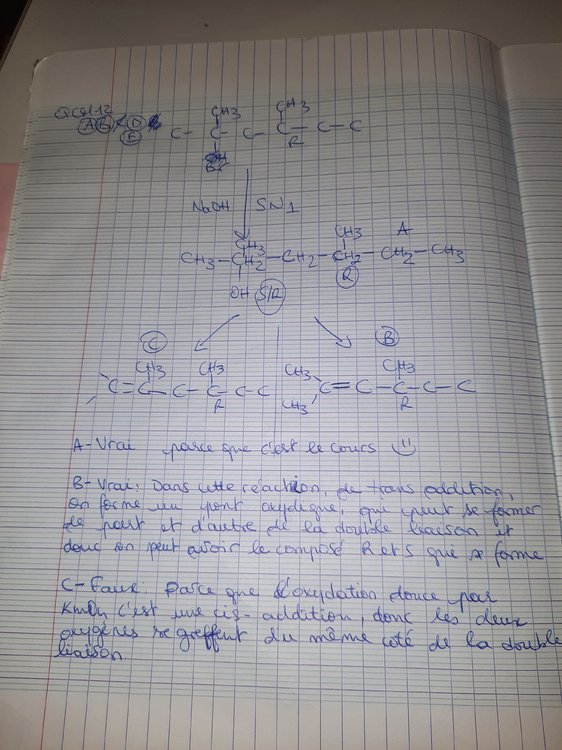 QCM 12
A B C D
E
CH3 CH3
C - C - C - C - C - C
Br R
NaOH SN1
CH3 CH3 A
CH3 - CH2 - CH2 - CH2 - CH2 - CH3
OH S/R R
C B
CH3 CH3 CH3 CH3
C = C - C - C - C - C C = C - C - C - C
R CH3 R
A - Vrai parce que c'est le cours
B - Vrai : Dans cette réaction, de trans addition,
on forme un pont oxydique, qui peut se former
de part et d'autre de la double liaison et
donc on peut avoir le composé R et S que se forme
C - Faux : Parce que l'oxydation douce par
KmOn c'est une cis-addition, donc les deux
oxygènes se greffent du même côté de la double
liaison.